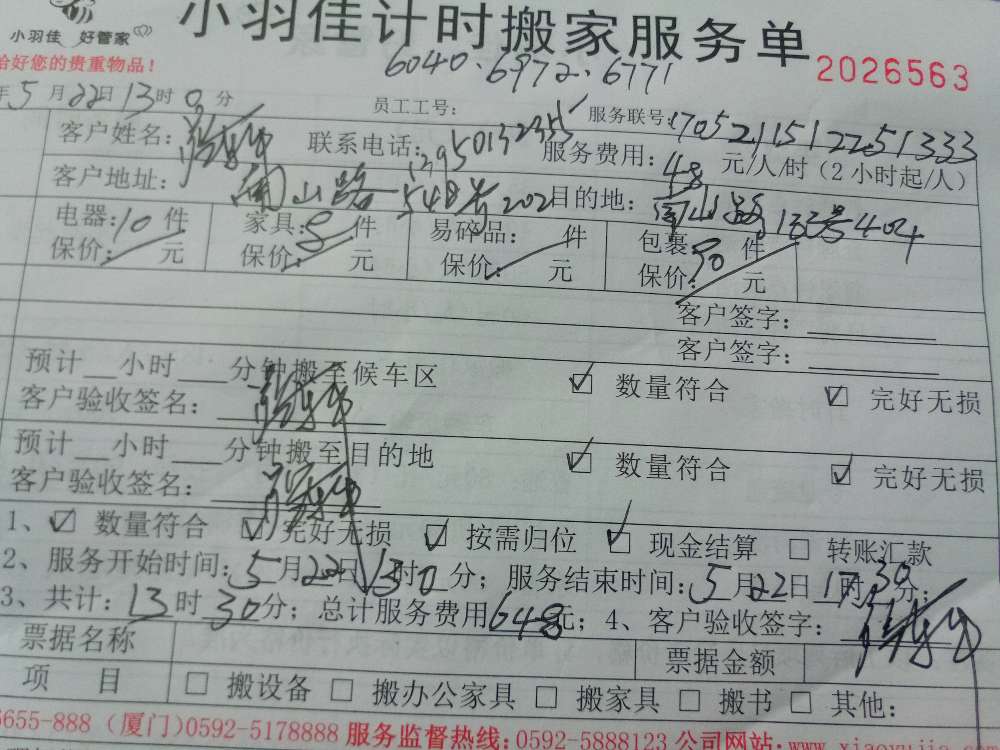 小羽佳计时搬家服务单
小羽佳 好管家
6040.6972.6771
2026563
给好您的贵重物品!
年5月22日13时0分 员工工号: 服务联号:1705211512251333
客户姓名: 联系电话:13950132355 服务费用:48元/人/时(2小时起/人)
客户地址:南山路548号202 目的地:南山路133号404
电器:10件 家具:5件 易碎品: 件 包裹:90件
保价: 元 保价: 元 保价: 元 保价: 元
客户签字:
客户签字:
预计__小时___分钟搬至候车区 ☑ 数量符合 ☑ 完好无损
客户验收签名:
预计__小时___分钟搬至目的地 ☑ 数量符合 ☑ 完好无损
客户验收签名:
1、☑ 数量符合 ☑ 完好无损 ☑ 按需归位 ☑ 现金结算 □ 转账汇款
2、服务开始时间:5月22日13时0分;服务结束时间:5月22日17时30分;
3、共计:13时30分;总计服务费用648元;4、客户验收签字:
票据名称 票据金额
项 目 □ 搬设备 □ 搬办公家具 □ 搬家具 □ 搬书 □ 其他:
5655-888(厦门)0592-5178888 服务监督热线:0592-5888123 公司网站:www.xiaoyujia.com